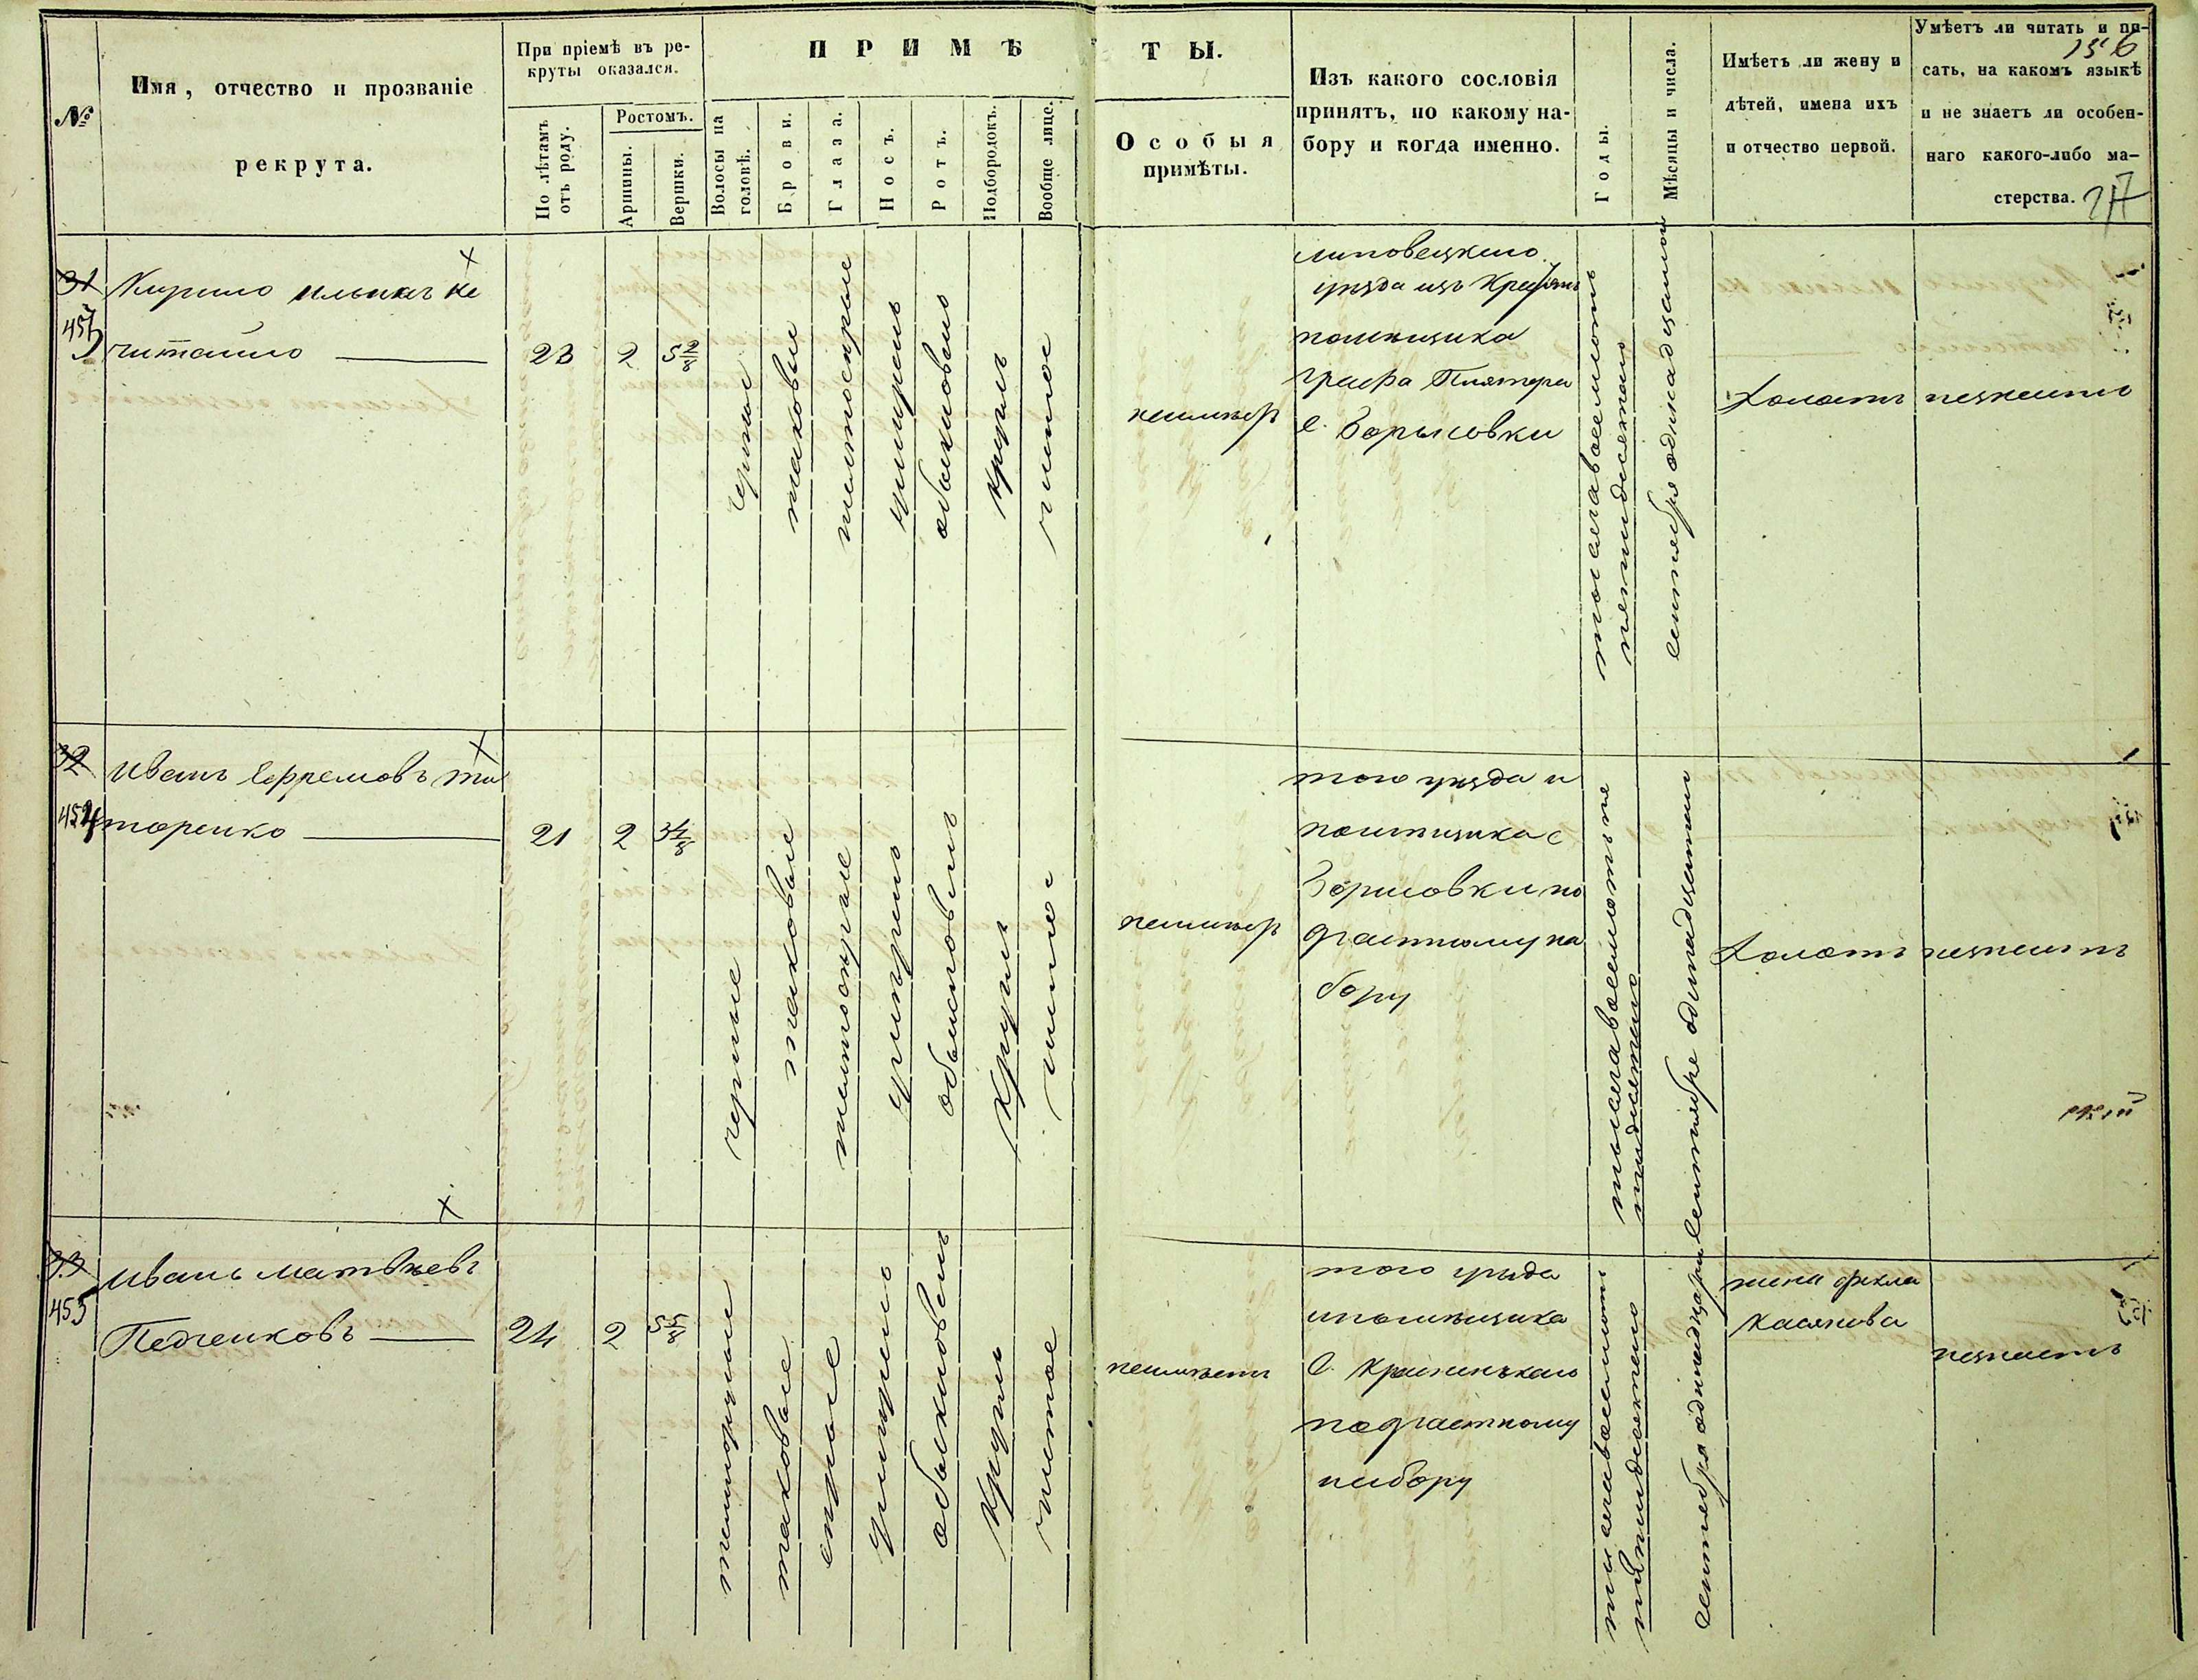 №
Имя, отчество и прозваніе
рекрута.
При пріемѣ въ ре-
круты оказался.
По лѣтамъ
отъ роду.
Ростомъ.
Аршины.
Вершки.
ПРИМѢ
ТЫ.
Волосы на
головѣ.
Брови.
Глаза.
Носъ.
Ротъ.
Подбородокъ.
Вообще лице.
Особыя
примѣты.
Изъ какого сословія
принятъ, по какому на-
бору и когда именно.
Годы.
Мѣсяцы и числа.
Имѣетъ ли жену и
дѣтей, имена ихъ
и отчество первой.
Умѣетъ ли читать и пи-
сать, на какомъ языкѣ
и не знаетъ ли особен-
наго какого-либо ма-
стерства.
31
453
Кирило
читайло
23
2
5 2/8
черные
таковые
обыкновенъ
круглъ
чистое
неимѣет
липовецкаго
уѣзда изъ Крестьянъ
помѣщика
графа Плятера
с. Борисовки
тысяча восемсотъ
пятидесятого
сентября одинадцатого
холостъ
незнаетъ
32
454
Иванъ Ефремовъ ти
торенко
21
2
3 4/8
черные
таковые
обыкновенъ
круглъ
чистое
неимѣет
того уѣзда и
помѣщика с
Борисовки по
участному на
бору
сентября
холостъ
незнаетъ
33
455
Иванъ Матвѣевъ
Педченковъ
24
2
5 5/8
таковые
серые
обыкновенъ
круглъ
чистое
неимѣетъ
того уѣзда
ипомѣщика
по участному
набору
сентября
жена фекла
Касянова
незнаетъ